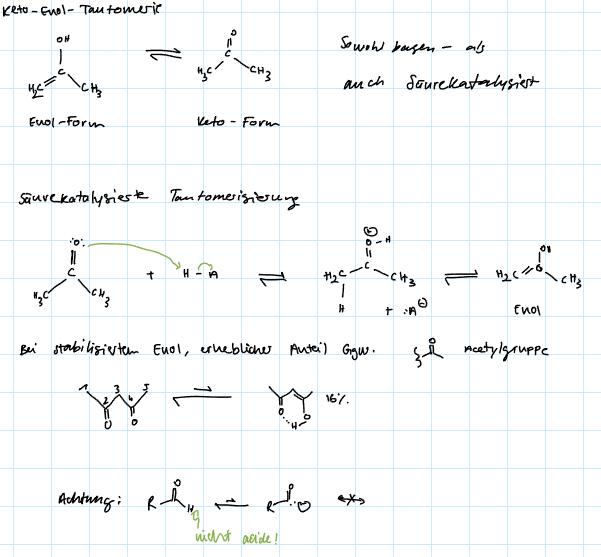 Keto-Enol-Tautomerie
OH
C
H₂C
CH₃
Enol-Form
O
C
H₃C
CH₃
Keto-Form
Sowohl basen- als
auch Säurekatalysiert
Säurekatalysierte Tautomerisierung
:O:
C
H₃C
CH₃
+ H-A
O-H
C
H₂C
CH₃
H
+ :A⊖
OH
H₂C
CH₃
Enol
Bei stabilisiertem Enol, erheblicher Anteil Ggw.
O
Acetylgruppe
1 2 3 4 5
O O
O H O
16%
Achtung:
R O H
R O
nicht acide!